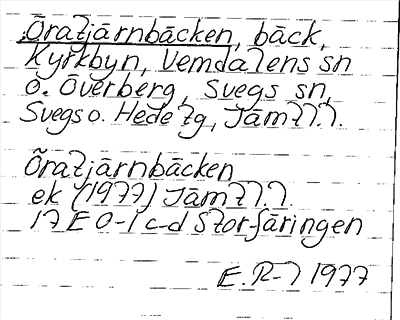 Öratjärnbäcken, bäck,
Kyrkbyn, Vemdalens sn
o. Överberg, Svegs sn,
Svegs o. Hede tg, Jämtl. l.
Öratjärnbäcken
ek (1977) Jämtl. l.
17 E 0-1 c-d Storfäringen
E.R-l 1977